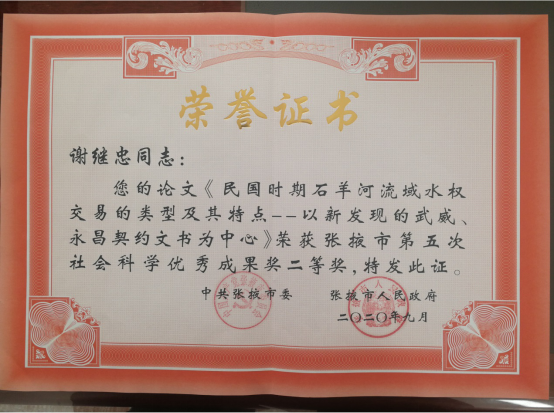 荣誉证书
谢继忠同志：
您的论文《民国时期石羊河流域水权
交易的类型及其特点--以新发现的武威、
永昌契约文书为中心》荣获张掖市第五次
社会科学优秀成果奖二等奖，特发此证。
中共张掖市委 张掖市人民政府
二〇二〇年九月